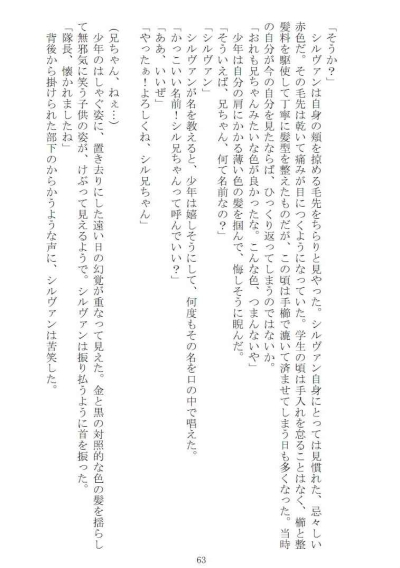 「そうか？」
シルヴァンは自身の頬を掠める毛先をちらりと見やった。シルヴァン自身にとっては見慣れた、忌々しい
赤色だ。その毛先は乾いて痛みが目につくようになっていた。学生の頃は手入れを怠ることはなく、櫛と整
髪料を駆使して丁寧に髪型を整えたものだが、この頃は手櫛で漉いて済ませてしまう日も多くなった。当時
の自分が今の自分を見たならば、ひっくり返ってしまうのではないか。
「おれも兄ちゃんみたいな色が良かったな。こんな色、つまんないや」
少年は自分の肩にかかる薄い色の髪を掴んで、悔しそうに睨んだ。
「そういえば、兄ちゃん、何て名前なの？」
「シルヴァン」
シルヴァンが名を教えると、少年は嬉しそうにして、何度もその名を口の中で唱えた。
「かっこいい名前！シル兄ちゃんって呼んでいい？」
「ああ、いいぜ」
「やったぁ！よろしくね、シル兄ちゃん」
（兄ちゃん、ねぇ…）
少年のはしゃぐ姿に、置き去りにした遠い日の幻覚が重なって見えた。金と黒の対照的な色の髪を揺らし
て無邪気に笑う子供の姿が、けぶって見えるようで。シルヴァンは振り払うように首を振った。
「隊長、懐かれましたね」
背後から掛けられた部下のからかうような声に、シルヴァンは苦笑した。
63